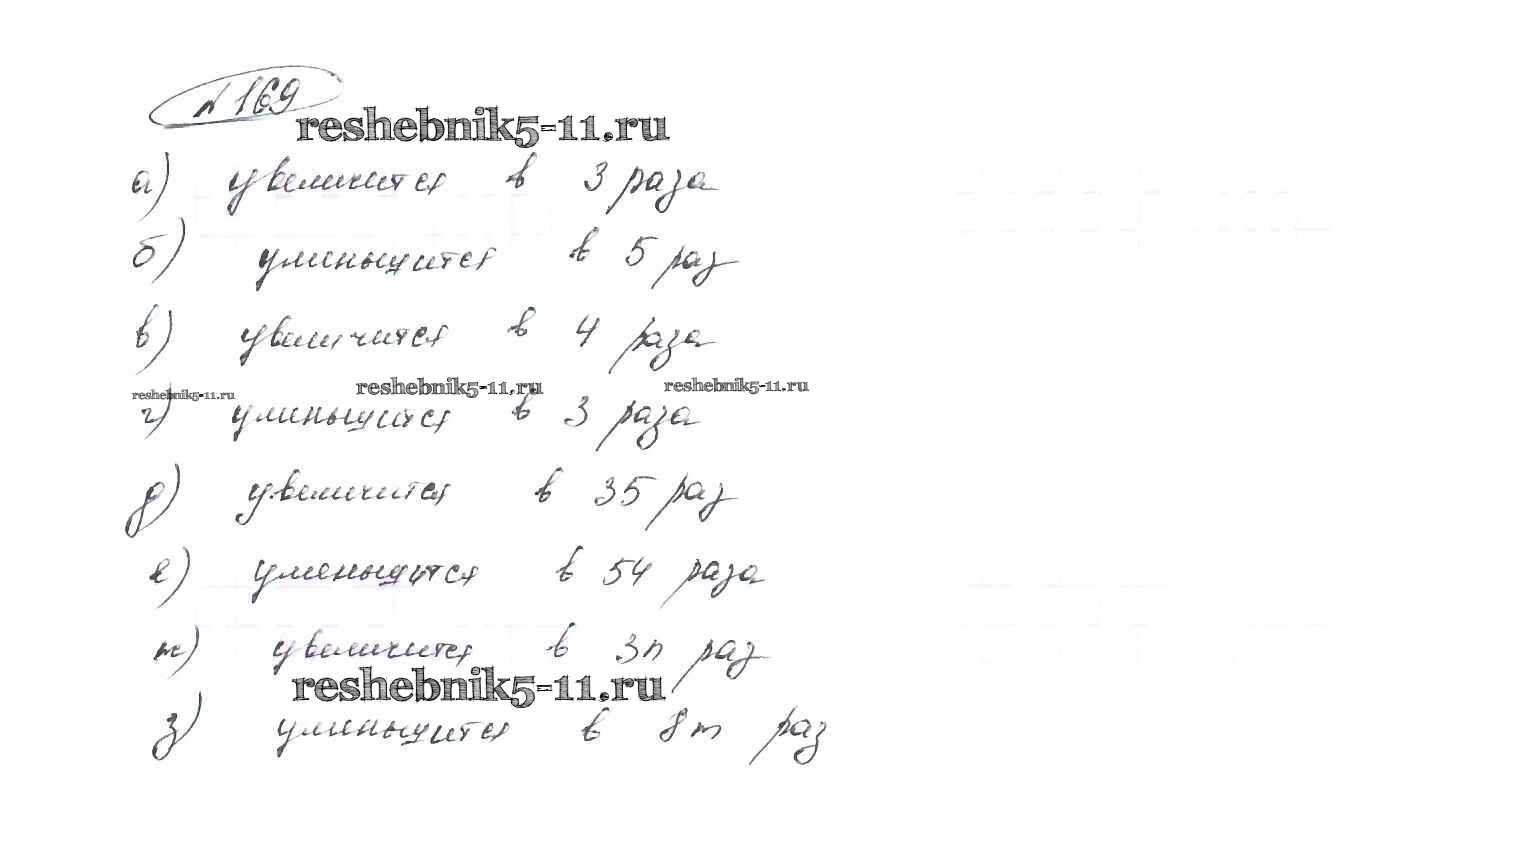 № 169
reshebnik5-11.ru
а) увеличится в 3 раза
б) уменьшится в 5 раз
в) увеличится в 4 раза
reshebnik5-11.ru reshebnik5-11.ru reshebnik5-11.ru
г) уменьшится в 3 раза
д) увеличится в 35 раз
е) уменьшится в 54 раза
ж) увеличится в 3n раз
reshebnik5-11.ru
з) уменьшится в 8m раз